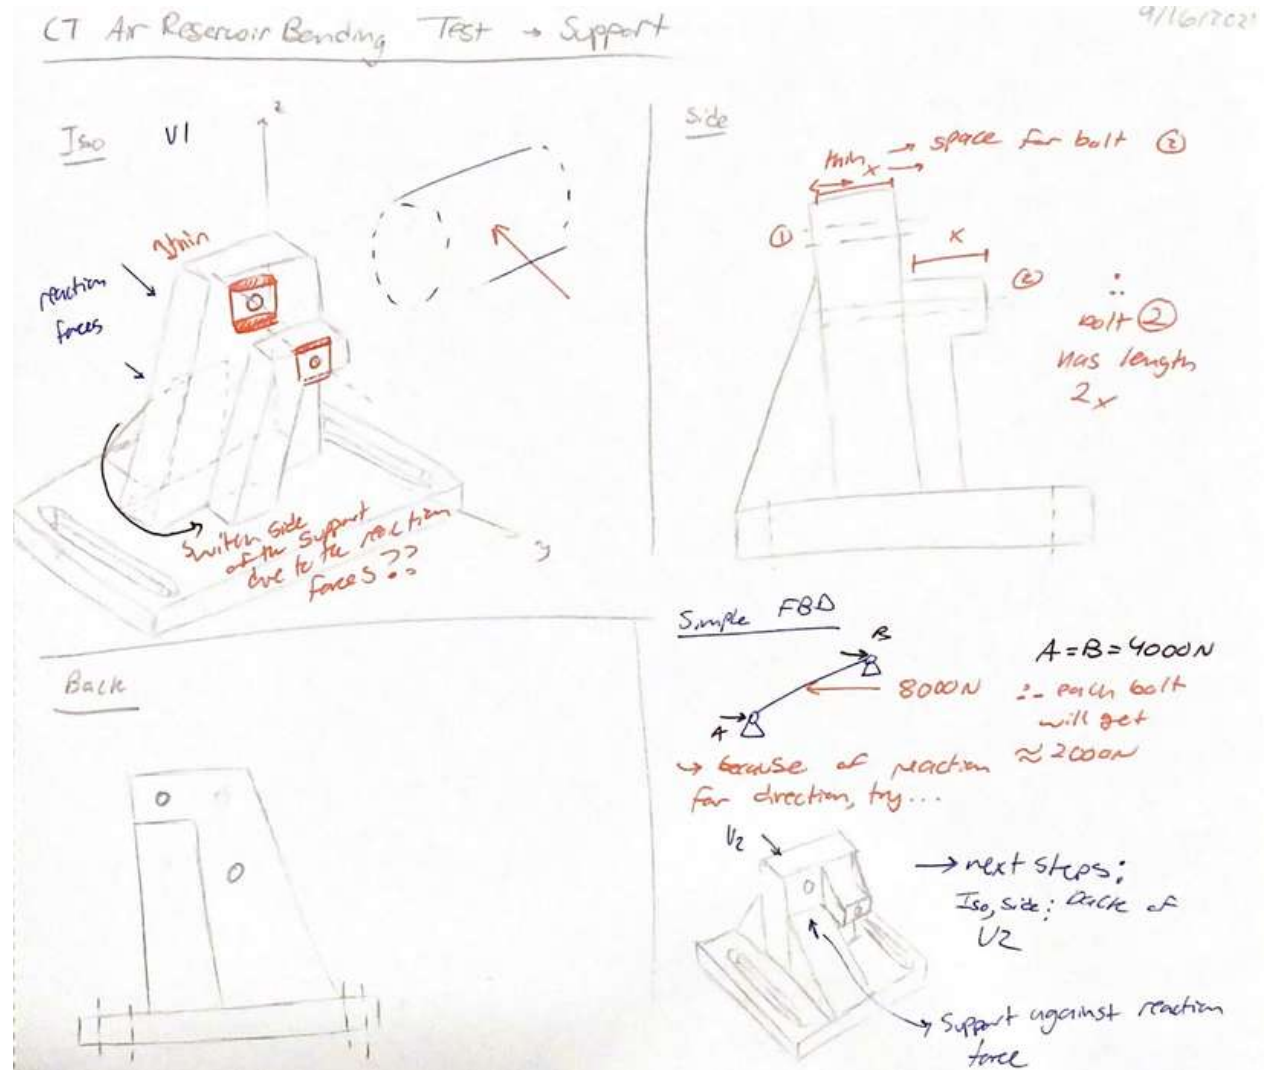 CT Air Reservoir Bending Test → Support
Iso
V1
z
min
reaction
forces
y
Switch side
of the support
due to the reaction
forces??
Side
min → space for bolt ②
x →
①
x
②
∴
bolt ②
has length
2x
Simple FBD
B
A
8000N
A=B=4000N
∴ each bolt
will get
≈2000N
↳ because of reaction
for direction, try...
V2
→ next steps:
Iso, side; back of
V2
→ Support against reaction
force
Back